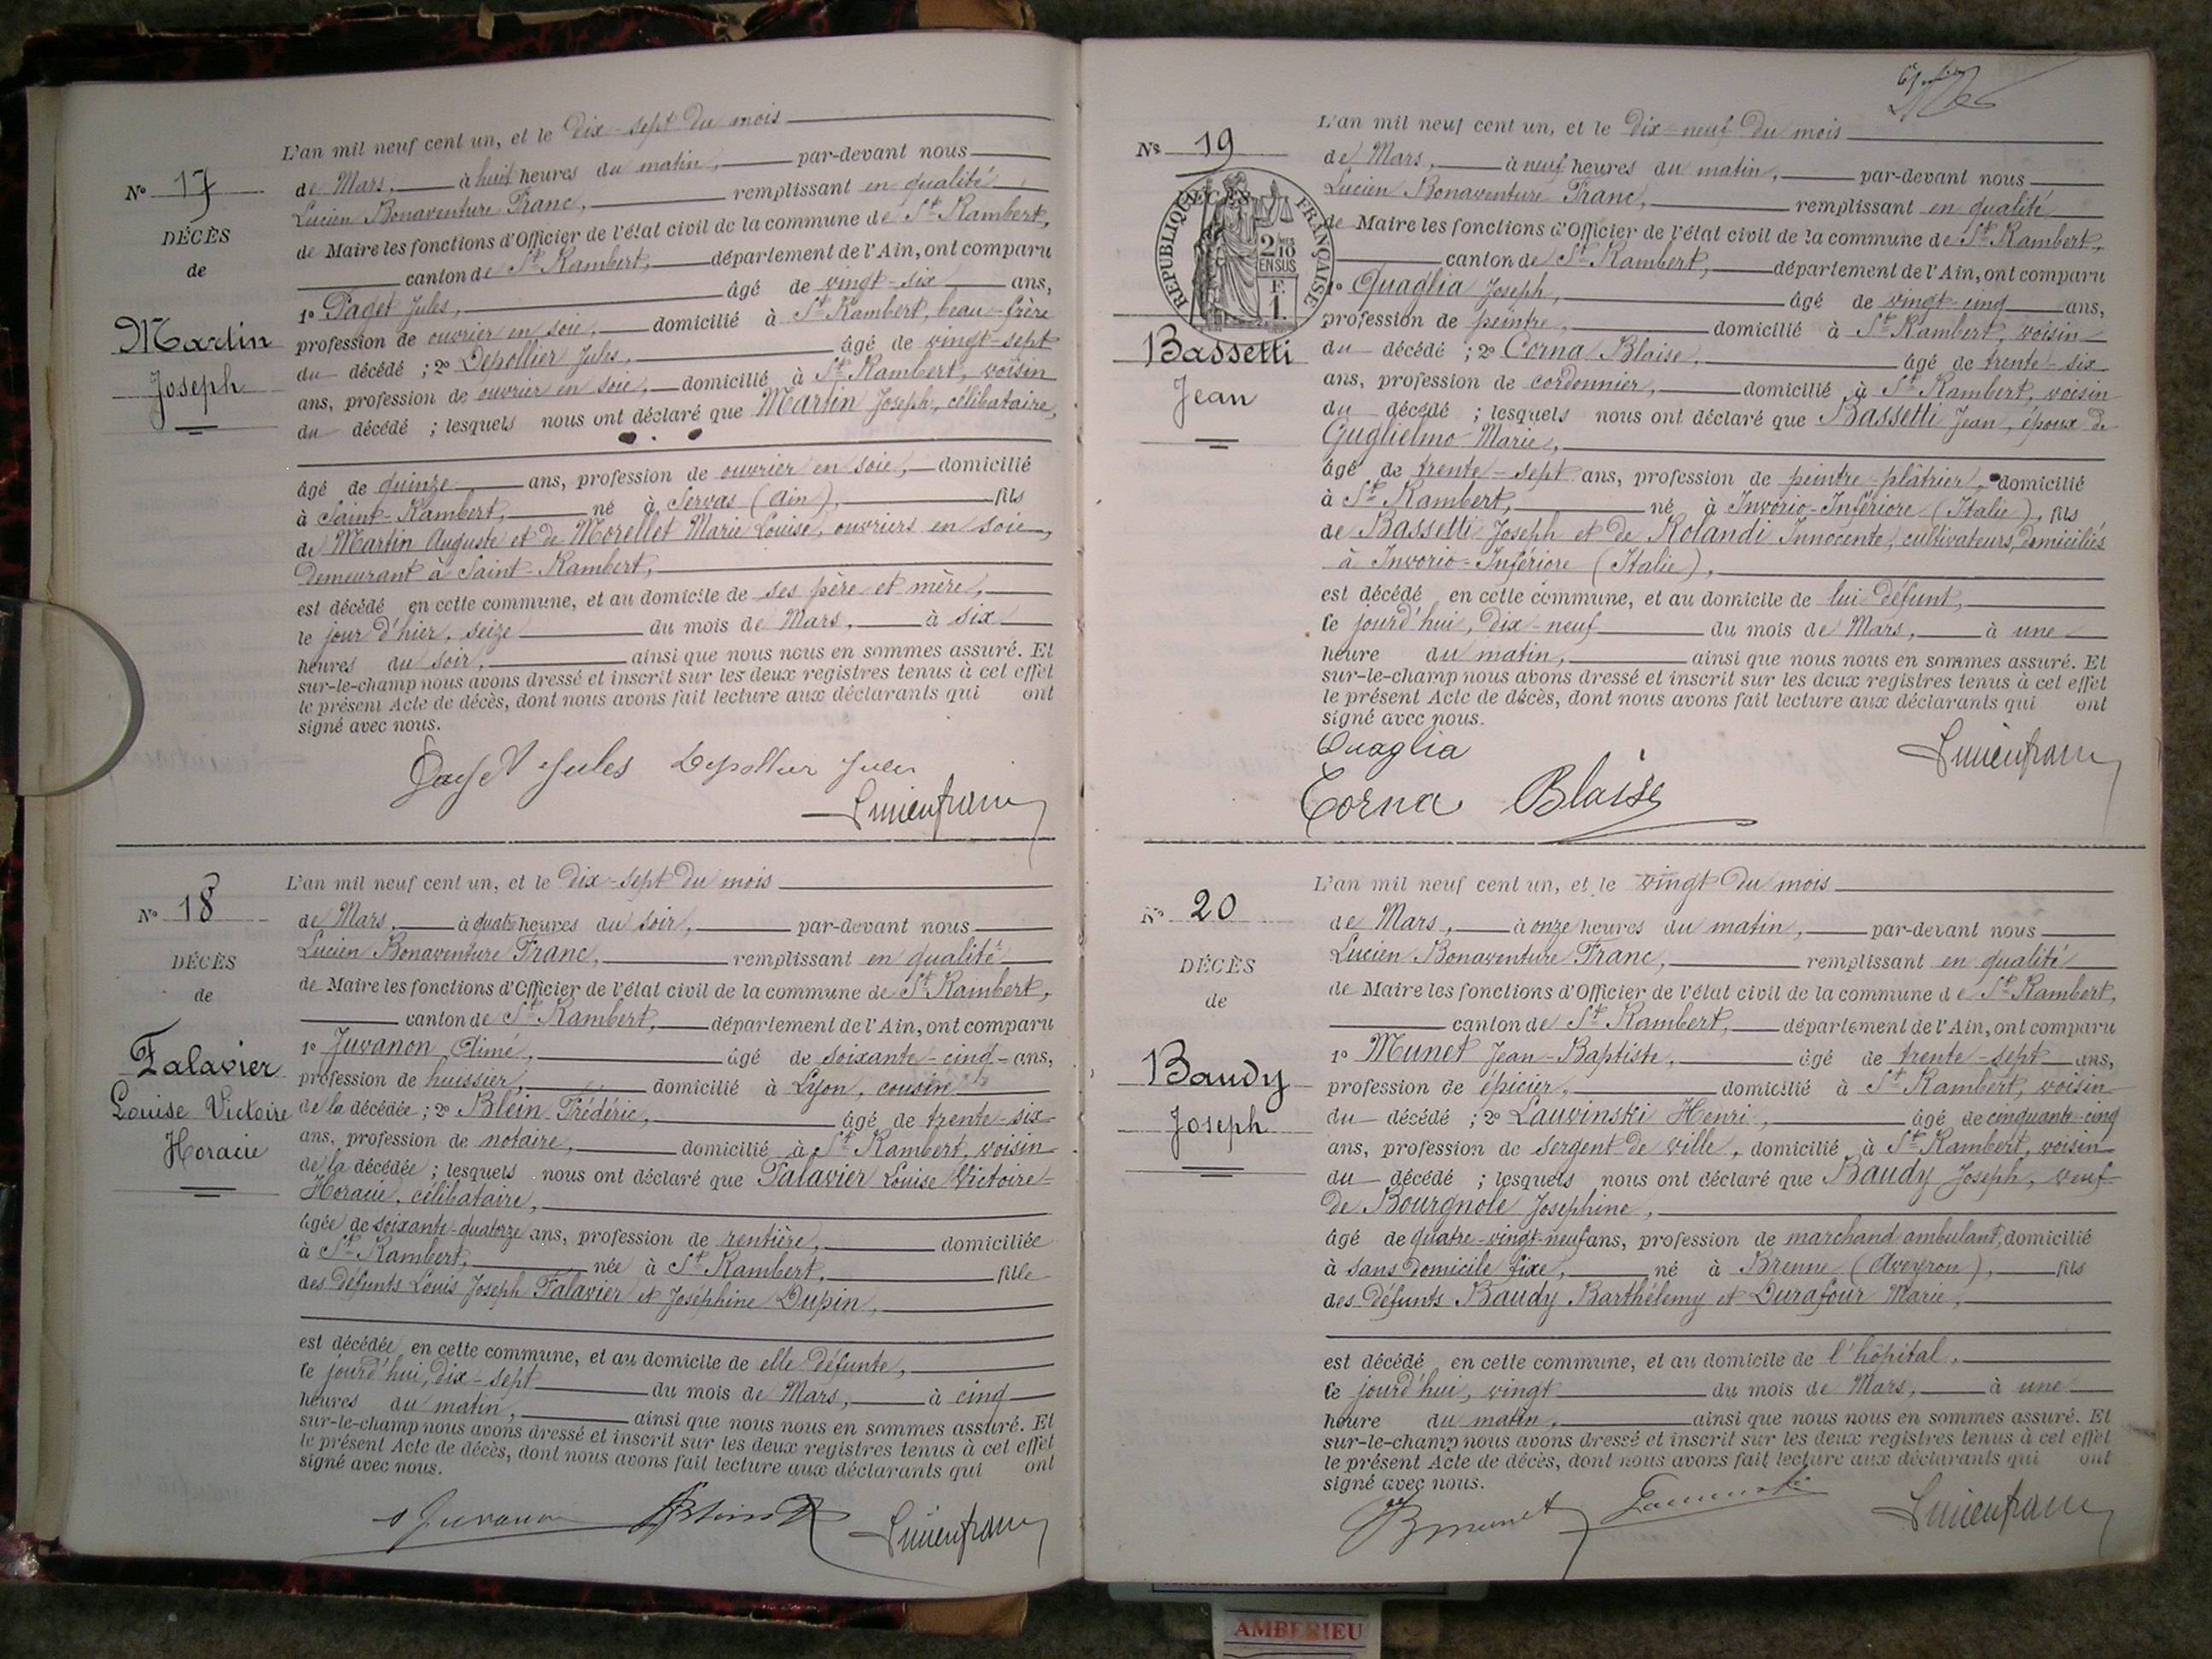 N° 17
DÉCÈS
de
Martin
Joseph
L'an mil neuf cent un, et le dix-sept du mois
de Mars, à huit heures du matin, par-devant nous
Lucien Bonaventure Franc, remplissant en qualité
de Maire les fonctions d'Officier de l'état civil de la commune de St Rambert,
canton de St Rambert, département de l'Ain, ont comparu
1° Paget Jules, âgé de vingt-six ans,
profession de ouvrier en soie, domicilié à St Rambert, beau-frère
du décédé ; 2° Depollier Jules, âgé de vingt-sept
ans, profession de ouvrier en soie, domicilié à St Rambert, voisin
du décédé ; lesquels nous ont déclaré que Martin Joseph, célibataire,
âgé de quinze ans, profession de ouvrier en soie, domicilié
à Saint-Rambert, né à Servas (Ain), fils
de Martin Auguste et de Morellet Marie Louise, ouvriers en soie,
demeurant à Saint-Rambert,
est décédé en cette commune, et au domicile de ses père et mère,
le jour d'hier, seize du mois de Mars, à six
heures du soir, ainsi que nous nous en sommes assuré. Et
sur-le-champ nous avons dressé et inscrit sur les deux registres tenus à cet effet
le présent Acte de décès, dont nous avons fait lecture aux déclarants qui ont
signé avec nous.
Paget Jules Depollier Jules
Lucien franc
N° 18
DÉCÈS
de
Falavier
Louise Victoire
Horacie
L'an mil neuf cent un, et le dix-sept du mois
de Mars, à quatre heures du soir, par-devant nous
Lucien Bonaventure Franc, remplissant en qualité
de Maire les fonctions d'Officier de l'état civil de la commune de St Rambert,
canton de St Rambert, département de l'Ain, ont comparu
1° Juvanon Aimé, âgé de soixante-cinq ans,
profession de huissier, domicilié à Lyon, cousin
de la décédée ; 2° Blein Frédéric, âgé de trente-six
ans, profession de notaire, domicilié à St Rambert, voisin
de la décédée ; lesquels nous ont déclaré que Falavier Louise Victoire
Horacie, célibataire,
âgée de soixante-quatorze ans, profession de rentière, domiciliée
à St Rambert, née à St Rambert, fille
des défunts Louis Joseph Falavier et Joséphine Dupin,
est décédée en cette commune, et au domicile de elle défunte,
le jourd'hui, dix-sept du mois de Mars, à cinq
heures du matin, ainsi que nous nous en sommes assuré. Et
sur-le-champ nous avons dressé et inscrit sur les deux registres tenus à cet effet
le présent Acte de décès, dont nous avons fait lecture aux déclarants qui ont
signé avec nous.
Juvanon Blein Lucien franc
N° 19
DÉCÈS
RÉPUBLIQUE FRANÇAISE
2/10
EN SUS
F.
1.
Bassetti
Jean
L'an mil neuf cent un, et le dix-neuf du mois
de Mars, à neuf heures du matin, par-devant nous
Lucien Bonaventure Franc, remplissant en qualité
de Maire les fonctions d'Officier de l'état civil de la commune de St Rambert,
canton de St Rambert, département de l'Ain, ont comparu
1° Quaglia Joseph, âgé de vingt-cinq ans,
profession de peintre, domicilié à St Rambert, voisin
du décédé ; 2° Corna Blaise, âgé de trente-six
ans, profession de cordonnier, domicilié à St Rambert, voisin
du décédé ; lesquels nous ont déclaré que Bassetti Jean, époux de
Guglielmo Marie,
âgé de trente-sept ans, profession de peintre-plâtrier, domicilié
à St Rambert, né à Invorio-Inferiore (Italie), fils
de Bassetti Joseph et de Rolandi Innocente, cultivateurs, domiciliés
à Invorio-Inferiore (Italie),
est décédé en cette commune, et au domicile de lui défunt,
le jourd'hui, dix-neuf du mois de Mars, à une
heure du matin, ainsi que nous nous en sommes assuré. Et
sur-le-champ nous avons dressé et inscrit sur les deux registres tenus à cet effet
le présent Acte de décès, dont nous avons fait lecture aux déclarants qui ont
signé avec nous.
Quaglia Lucien franc
Corna Blaise
N° 20
DÉCÈS
de
Baudy
Joseph
L'an mil neuf cent un, et le vingt du mois
de Mars, à onze heures du matin, par-devant nous
Lucien Bonaventure Franc, remplissant en qualité
de Maire les fonctions d'Officier de l'état civil de la commune de St Rambert,
canton de St Rambert, département de l'Ain, ont comparu
1° Munet Jean-Baptiste, âgé de trente-sept ans,
profession de épicier, domicilié à St Rambert, voisin
du décédé ; 2° Lauwinski Henri, âgé de cinquante-cinq
ans, profession de sergent de ville, domicilié à St Rambert, voisin
du décédé ; lesquels nous ont déclaré que Baudy Joseph, veuf
de Bourgnole Josephine,
âgé de quatre-vingt-neuf ans, profession de marchand ambulant, domicilié
à sans domicile fixe, né à Brenne (Aveyron), fils
des défunts Baudy Barthélemy et Durafour Marie,
est décédé en cette commune, et au domicile de l'hôpital,
le jourd'hui, vingt du mois de Mars, à une
heure du matin, ainsi que nous nous en sommes assuré. Et
sur-le-champ nous avons dressé et inscrit sur les deux registres tenus à cet effet
le présent Acte de décès, dont nous avons fait lecture aux déclarants qui ont
signé avec nous.
Munet Lauwinski Lucien franc
AMBERIEU